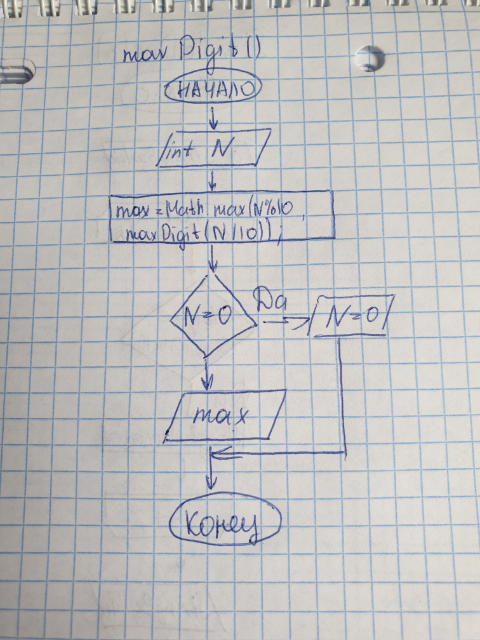 maxDigit()
НАЧАЛО
int N
max=Math.max(N%10,
maxDigit(N/10));
N=0
Да
N=0
max
Конец